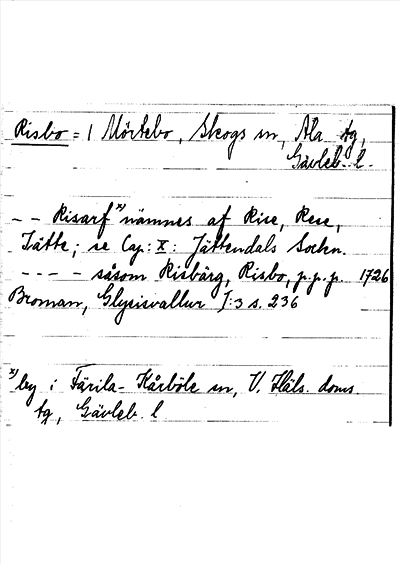 Risbo = | Mörtebo, Skogs sn, Ala tg,
Gävleb. l.
-- Risarf x) nämnes af Rise, Rese,
Jätte; se Cap: X: Jättendals Sochn.
---- såsom Risbärg, Risbo, p.p.p. 1726
Broman, Glysisvallur I:3 s. 236
x) by i Färila-Kårböle sn, V. Häls. doms.
tg, Gävleb. l